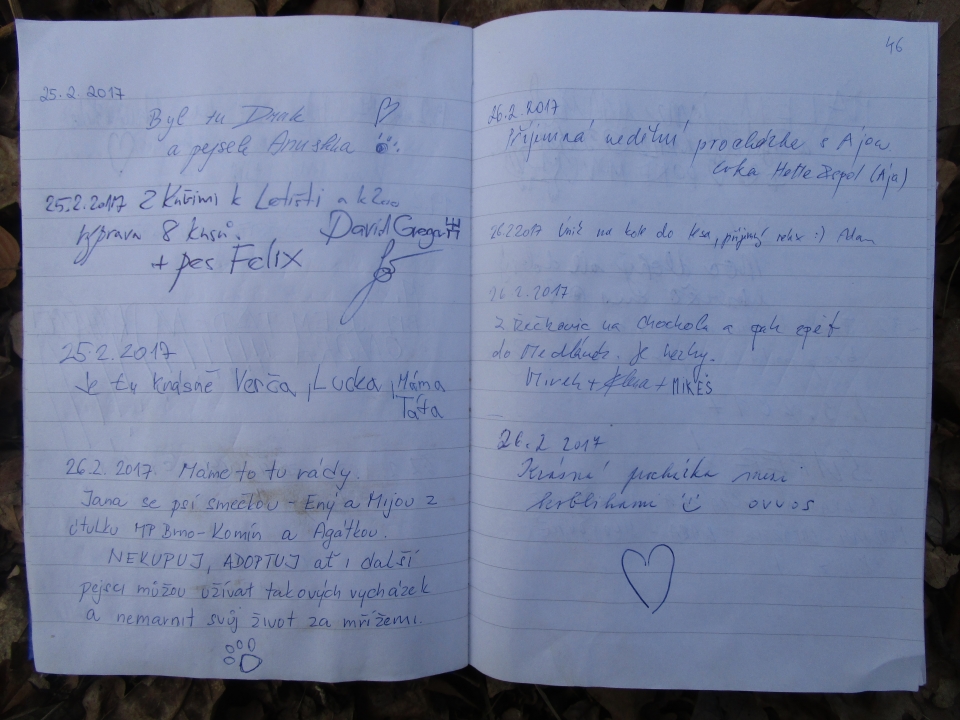 25.2.2017
Byl tu Drak
a pejsek Anuska
25.2.2017 Z Kuřimi k Letišti a k Zoo
výprava 8 kusů.
David Gregar
+ pes Felix
25.2.2017
Je tu krásně Verča, Lucka, Máma
Táta
26.2.2017. Máme to tu rády.
Jana se psí smečkou - Eny a Mijou z
útulku MP Brno-Komín a Agátkou.
NEKUPUJ, ADOPTUJ ať i další
pejsci můžou užívat takových vycházek
a nemarnit svůj život za mřížemi.
46
26.2.2017
Příjemná nedělní procházka s Ájou
(Ája)
26.2.2017 Únik na kole do lesa, příjemný relax :) Adam
26.2.2017
Z Řečkovic na Chochola a pak zpět
do Medlánek. Je hezky.
Mirek + + MIKEŠ
26.2 2017
Krásná procházka mezi